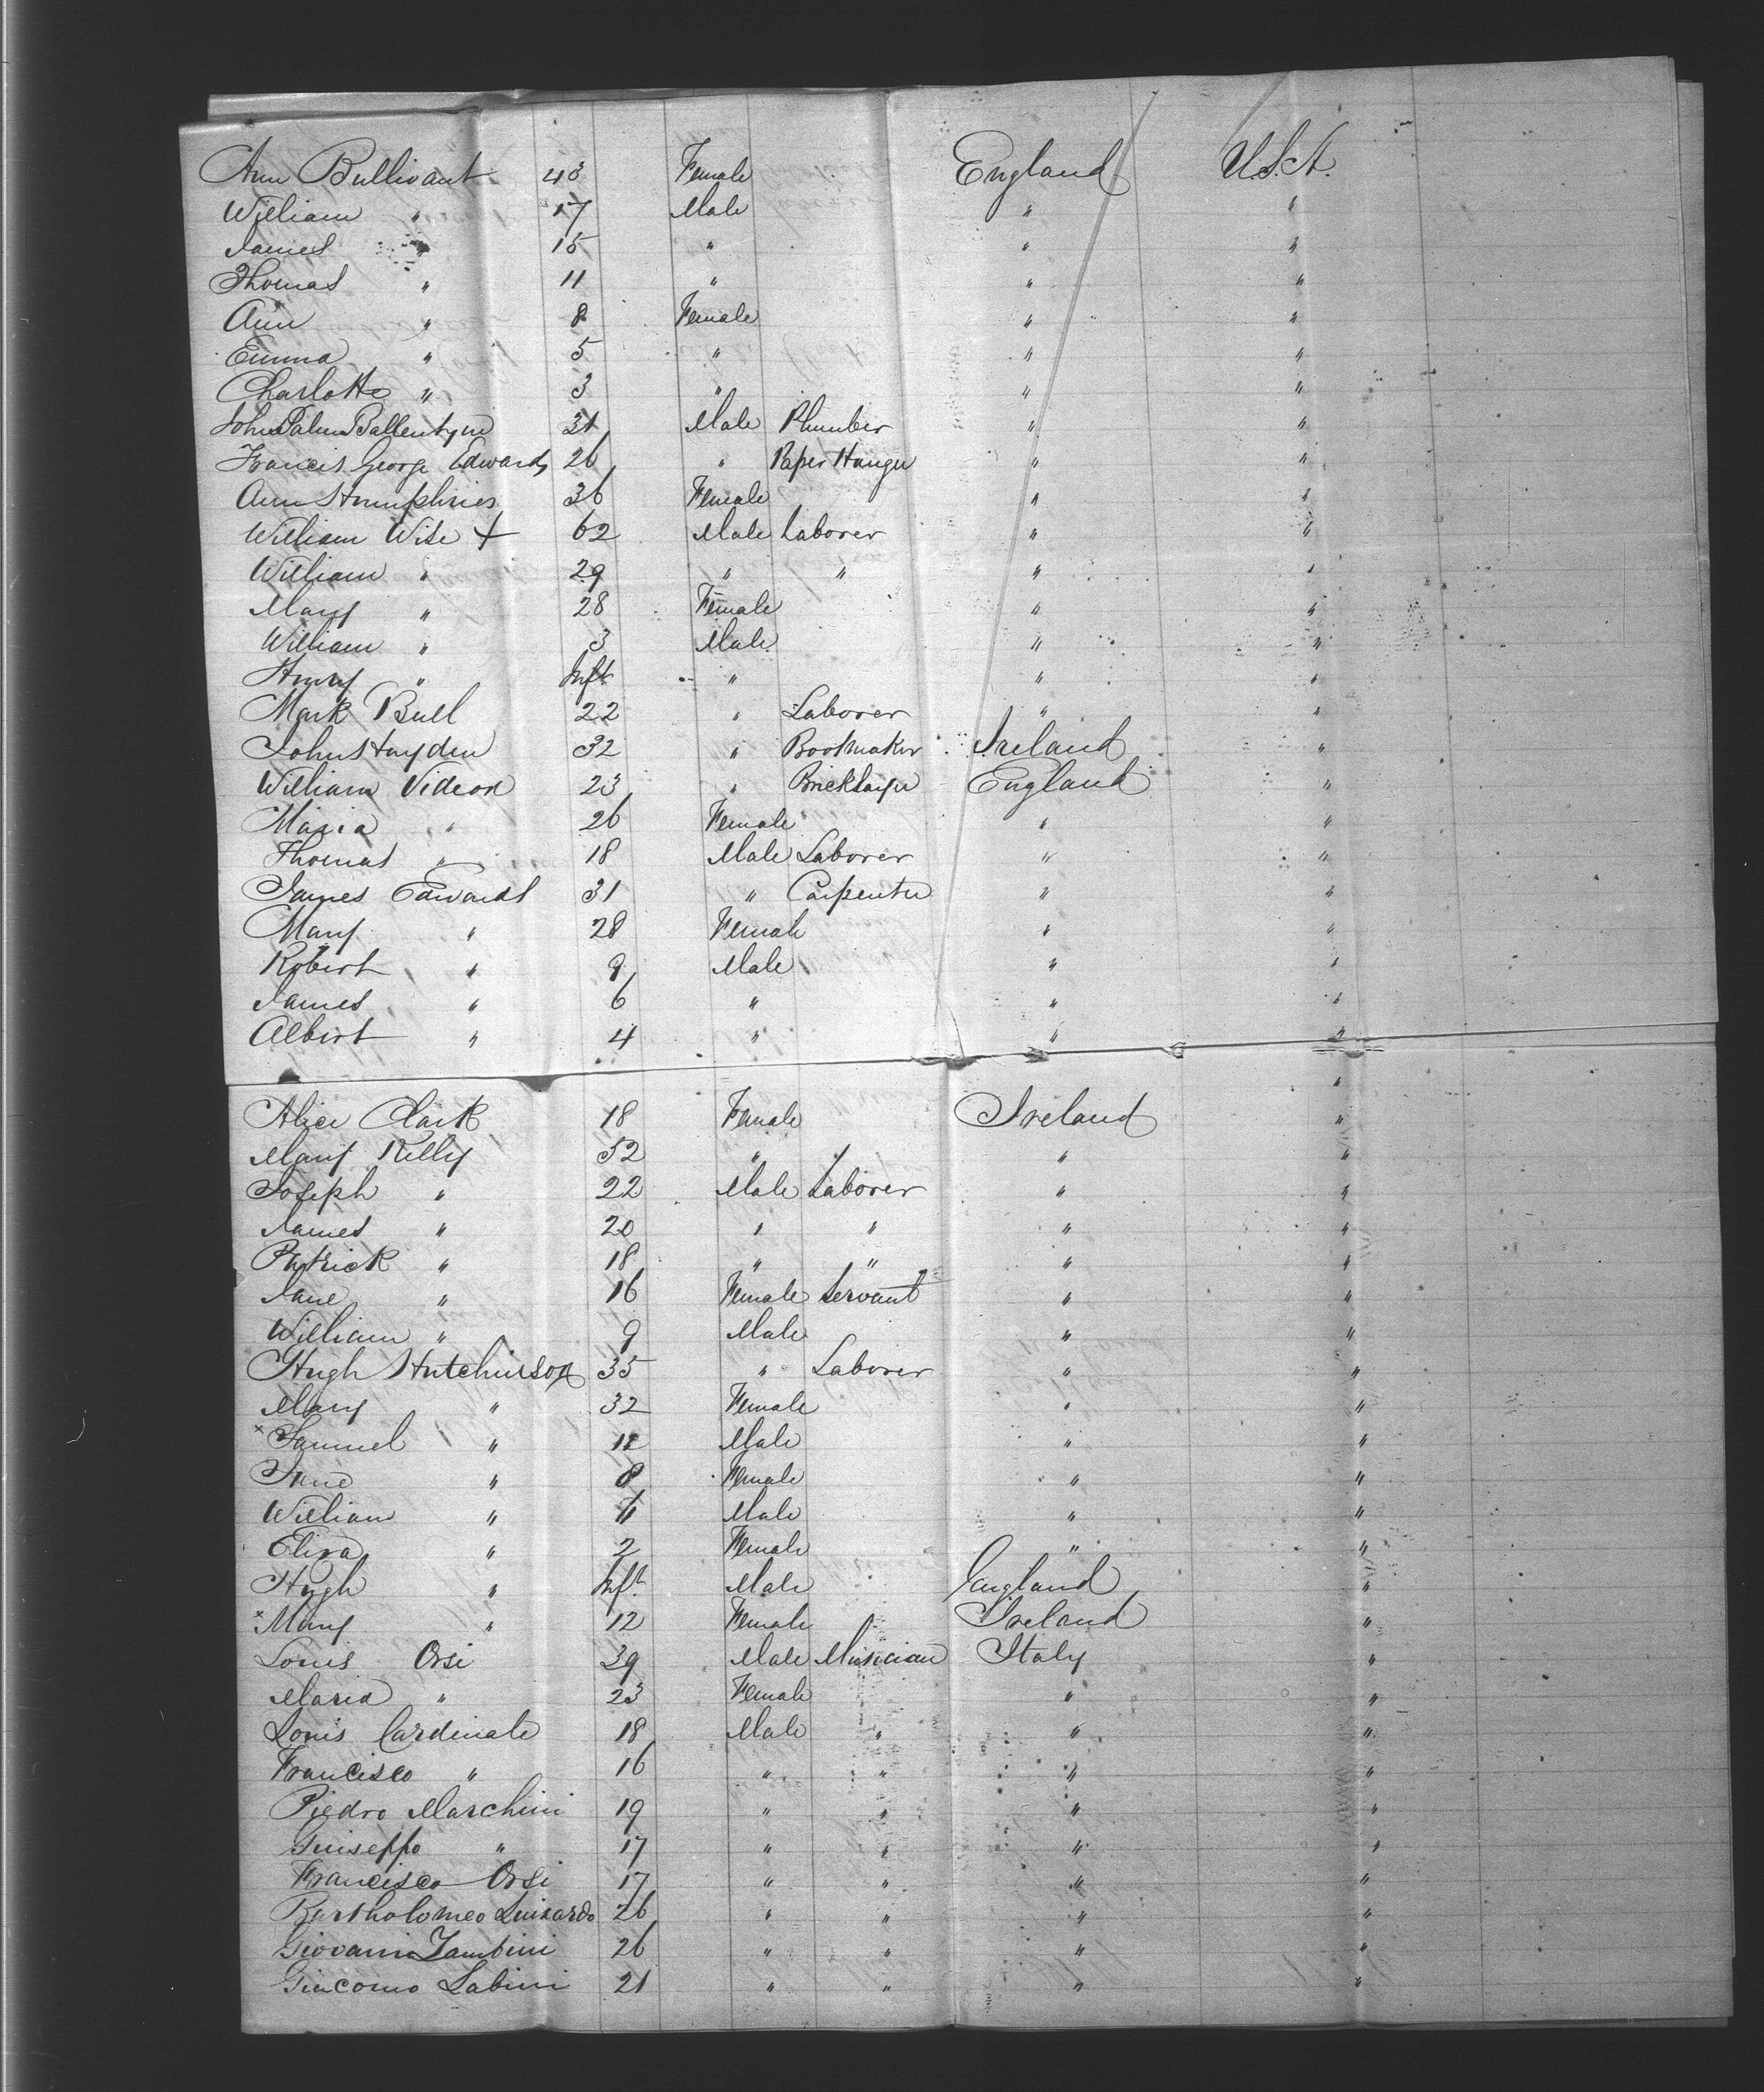 Ann Bullivant 43 Female England U.S.A.
William " 17 Male " "
James " 15 " " "
Thomas " 11 " " "
Ann " 8 Female " "
Emma " 5 " " "
Charlotte " 3 " " "
John Ballentyne 31 Male Plumber " "
Francis George Edwards 26 " Paper Hanger " "
Ann Humphries 36 Female " "
William Wise + 62 Male Laborer " "
William " 29 " " " "
Mary " 28 Female " "
William " 3 Male " "
Henry " Inft " " "
Mark Bull 22 " Laborer " "
John Hayden 32 " Bootmaker Ireland "
William Videon 23 " Bricklayer England "
Maria " 26 Female " "
Thomas " 18 Male Laborer " "
James Edwards 31 " Carpenter " "
Mary " 28 Female " "
Robert " 9 Male " "
James " 6 " " "
Albert " 4 " " "
"
Alice Clark 18 Female Ireland "
Mary Kelly 52 " " "
Joseph " 22 Male Laborer " "
James " 20 " " " "
Patrick " 18 " " " "
Jane " 16 Female Servant " "
William " 9 Male " "
Hugh Hutchinson 35 " Laborer " "
Mary " 32 Female " "
x Samuel " Male " "
Jane " 8 Female " "
William " Male " "
Eliza " 2 Female " "
Hugh " Inft Male England "
x Mary " 12 Female Ireland "
Louis Orsi 39 Male Musician Italy "
Maria " 23 Female " "
Louis Cardinale 18 Male " " "
Francisco " 16 " " " "
Piedro Marchini 19 " " " "
Guiseppo " 17 " " " "
Francisco Orsi 17 " " " "
Bartholomeo Luisardo 26 " " " "
Giovanni Zambini 26 " " " "
Giacomo Labini 21 " " " "